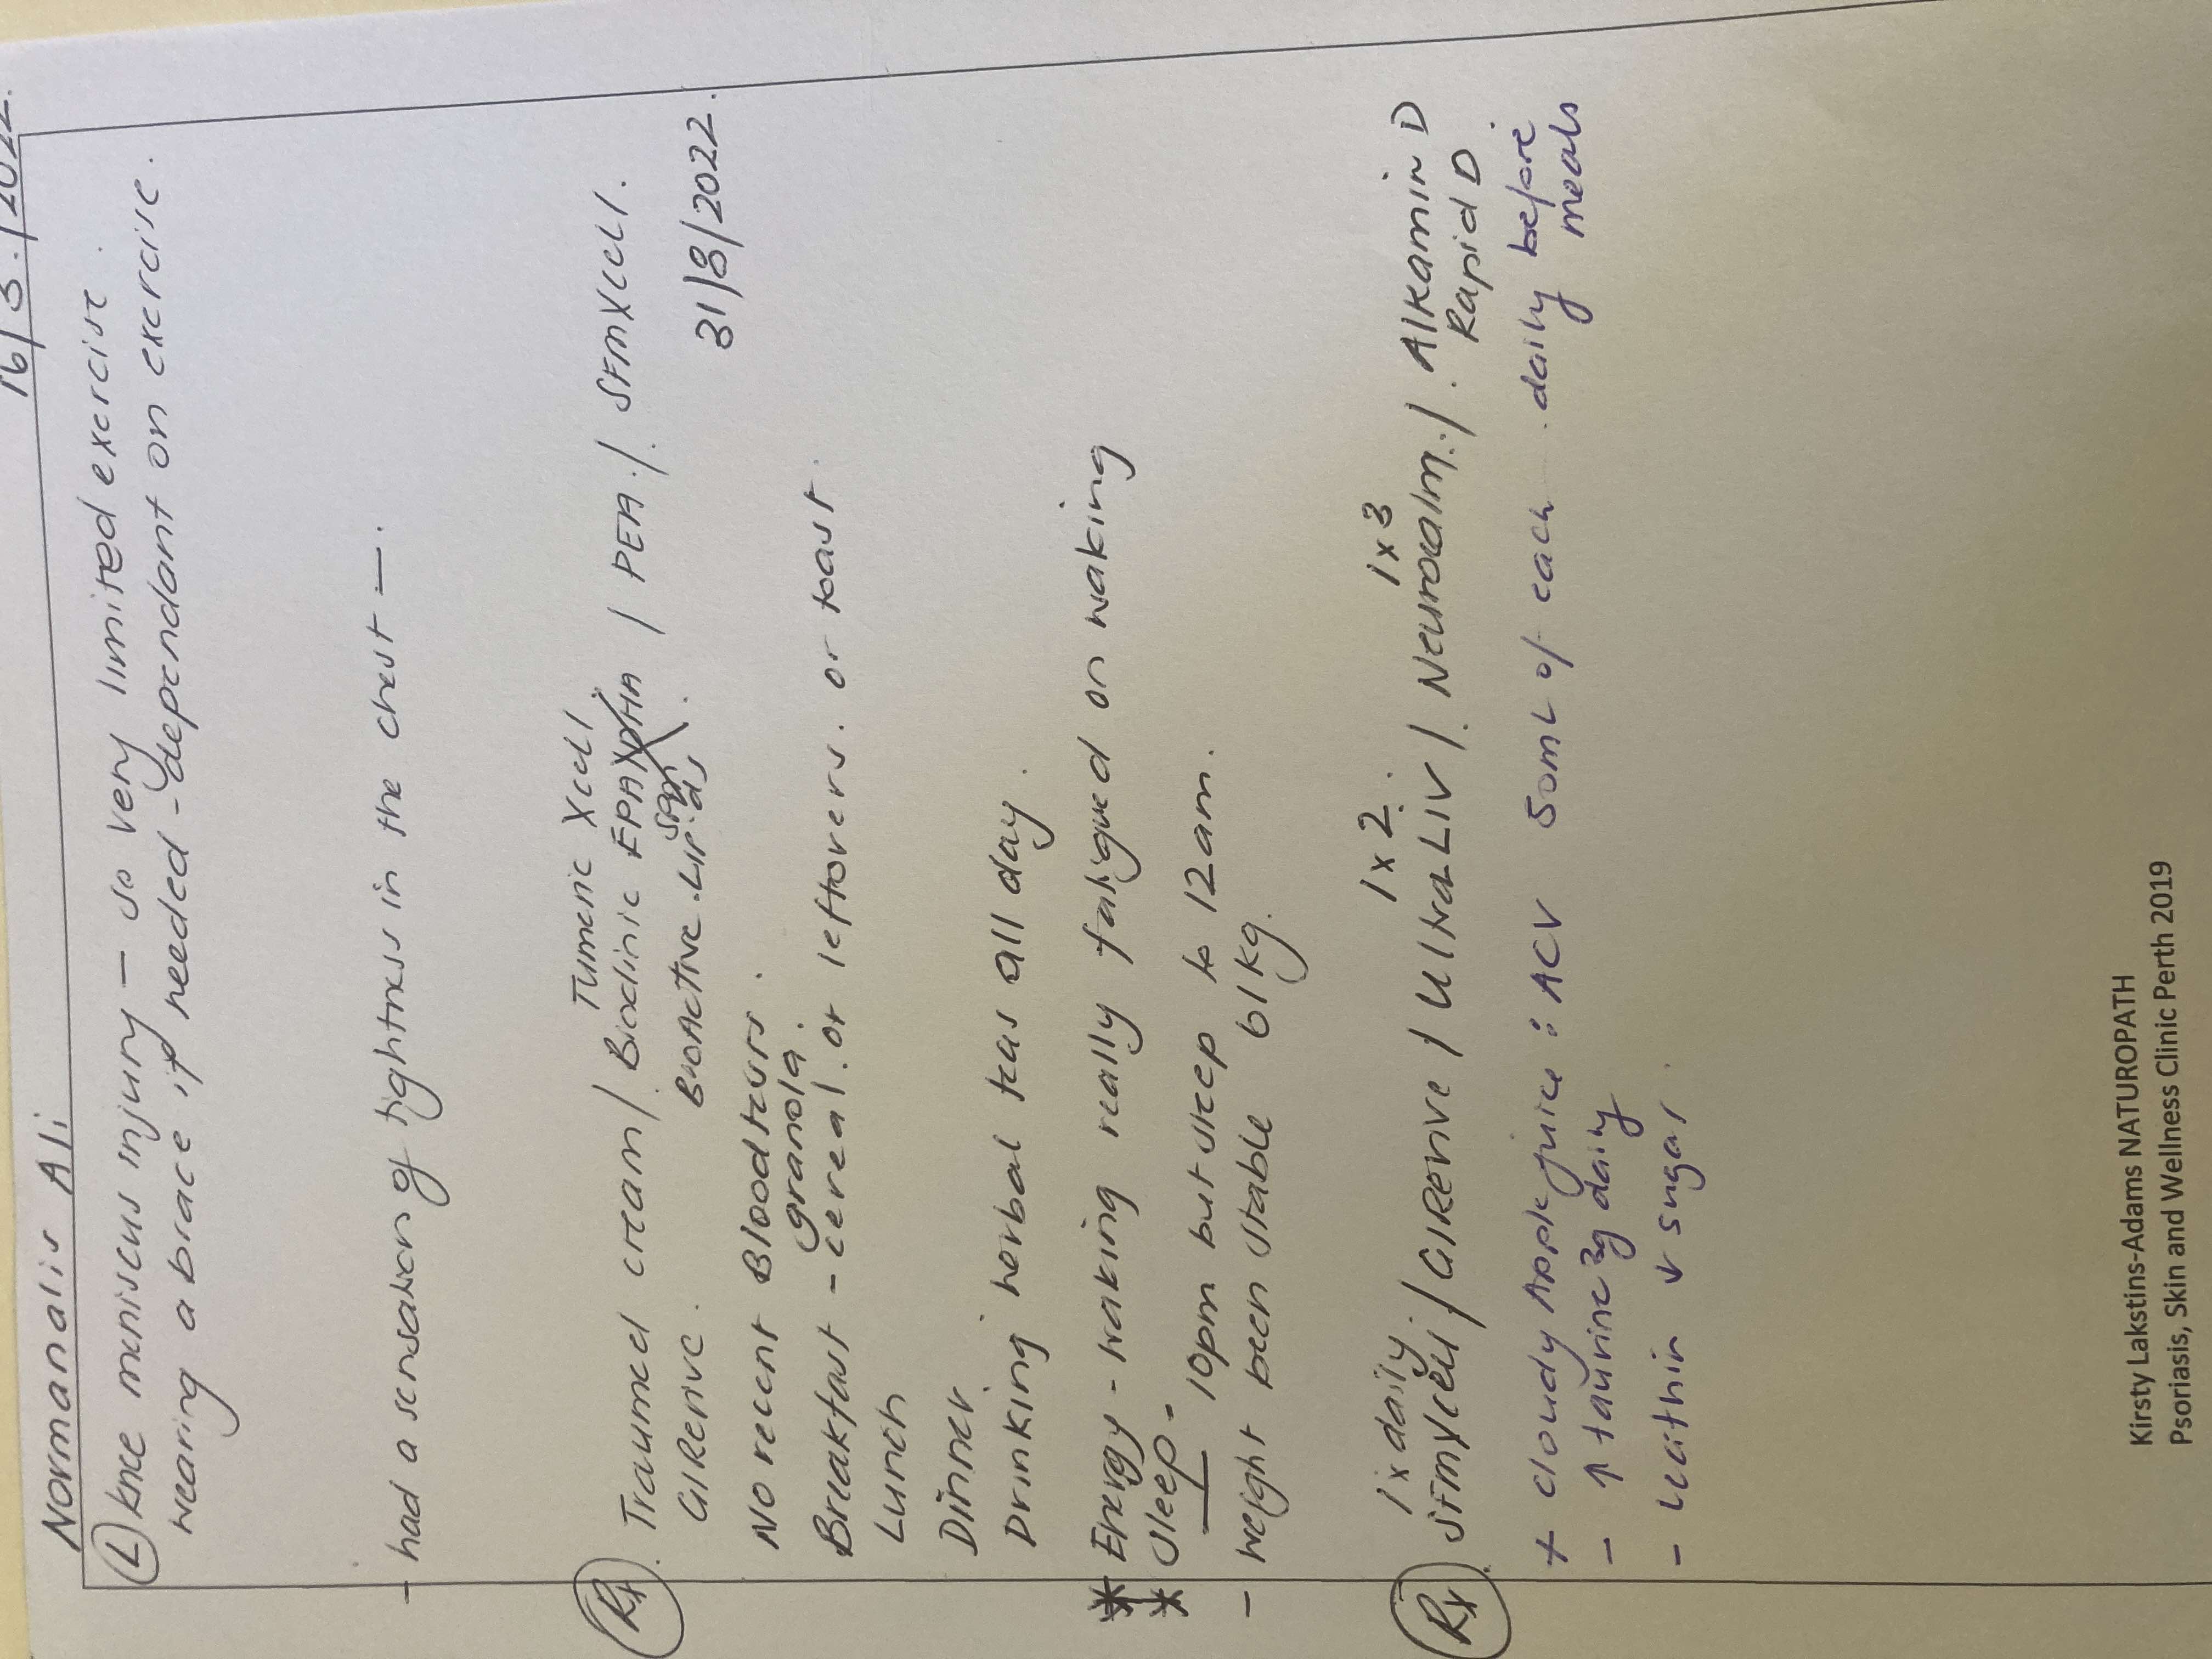 Normanalis Ali 16/3/2022.
(L) knee muniscus injury - so very limited exercise
wearing a brace if needed - dependant on exercise.
- had a sensation of tightness in the chest -.
Tumeric Xcell
(Rx) Traumed cream / Bioclinic EPAXDHA / PEA. / SFMXcell.
GIRevive. BioActive Lipids.
31/8/2022.
No recent Blood tests.
granola.
Breakfast - cereal. or leftovers. or toast.
Lunch
Dinner.
Drinking herbal teas all day.
* Energy - waking really fatigued on waking
* Sleep - 10pm but sleep to 12am.
- weight been stable 61kg.
1x daily. 1x2. 1x3
(Rx) SFMXcell / GIRevive / UltraLiv / Neurocalm. / Alkamin D
Rapid D.
+ cloudy Apple juice : ACV 50mL of each daily before
meals
- ↑ taurine 3g daily
- lecithin ↓ sugar.
Kirsty Lakstins-Adams NATUROPATH
Psoriasis, Skin and Wellness Clinic Perth 2019